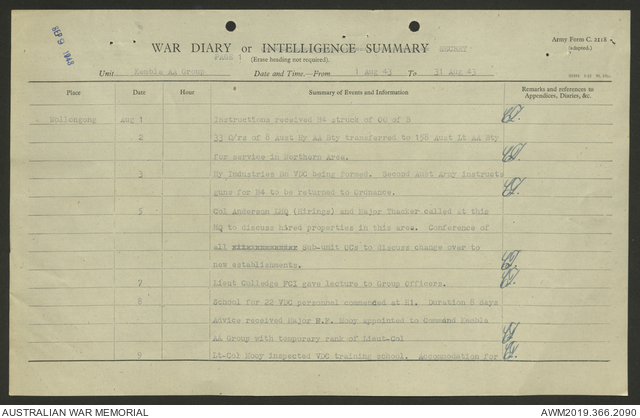 SEP 9 1943
WAR DIARY or INTELLIGENCE SUMMARY SECRET Army Form C. 2118
PAGE 1 (Erase heading not required). (adapted.)
Unit Kembla AA Group Date and Time—From 1 Aug 43 To 31 Aug 43
Place Date Hour Summary of Events and Information Remarks and references to
Appendices, Diaries, &c.
Wollongong Aug 1 Instructions received H4 struck of OO of B
2 33 O/rs of 8 Aust Hy AA Bty transferred to 158 Aust Lt AA Bty
for service in Northern Area.
3 Hy Industries Bn VDC being formed. Second Aust Army instructs
guns for H4 to be returned to Ordnance.
5 Col Anderson LHQ (Hirings) and Major Thacker called at this
HQ to discuss hired properties in this area. Conference of
all Sub-unit OCs to discuss change over to
new establishments.
7 Lieut Colledge FCI gave lecture to Group Officers.
8 School for 22 VDC personnel commenced at H1. Duration 8 days
Advice received Major appointed to Command Kembla
AA Group with temporary rank of Lieut-Col
9 Lt-Col inspected VDC training school. Accommodation for
AUSTRALIAN WAR MEMORIAL AWM2019.366.2090